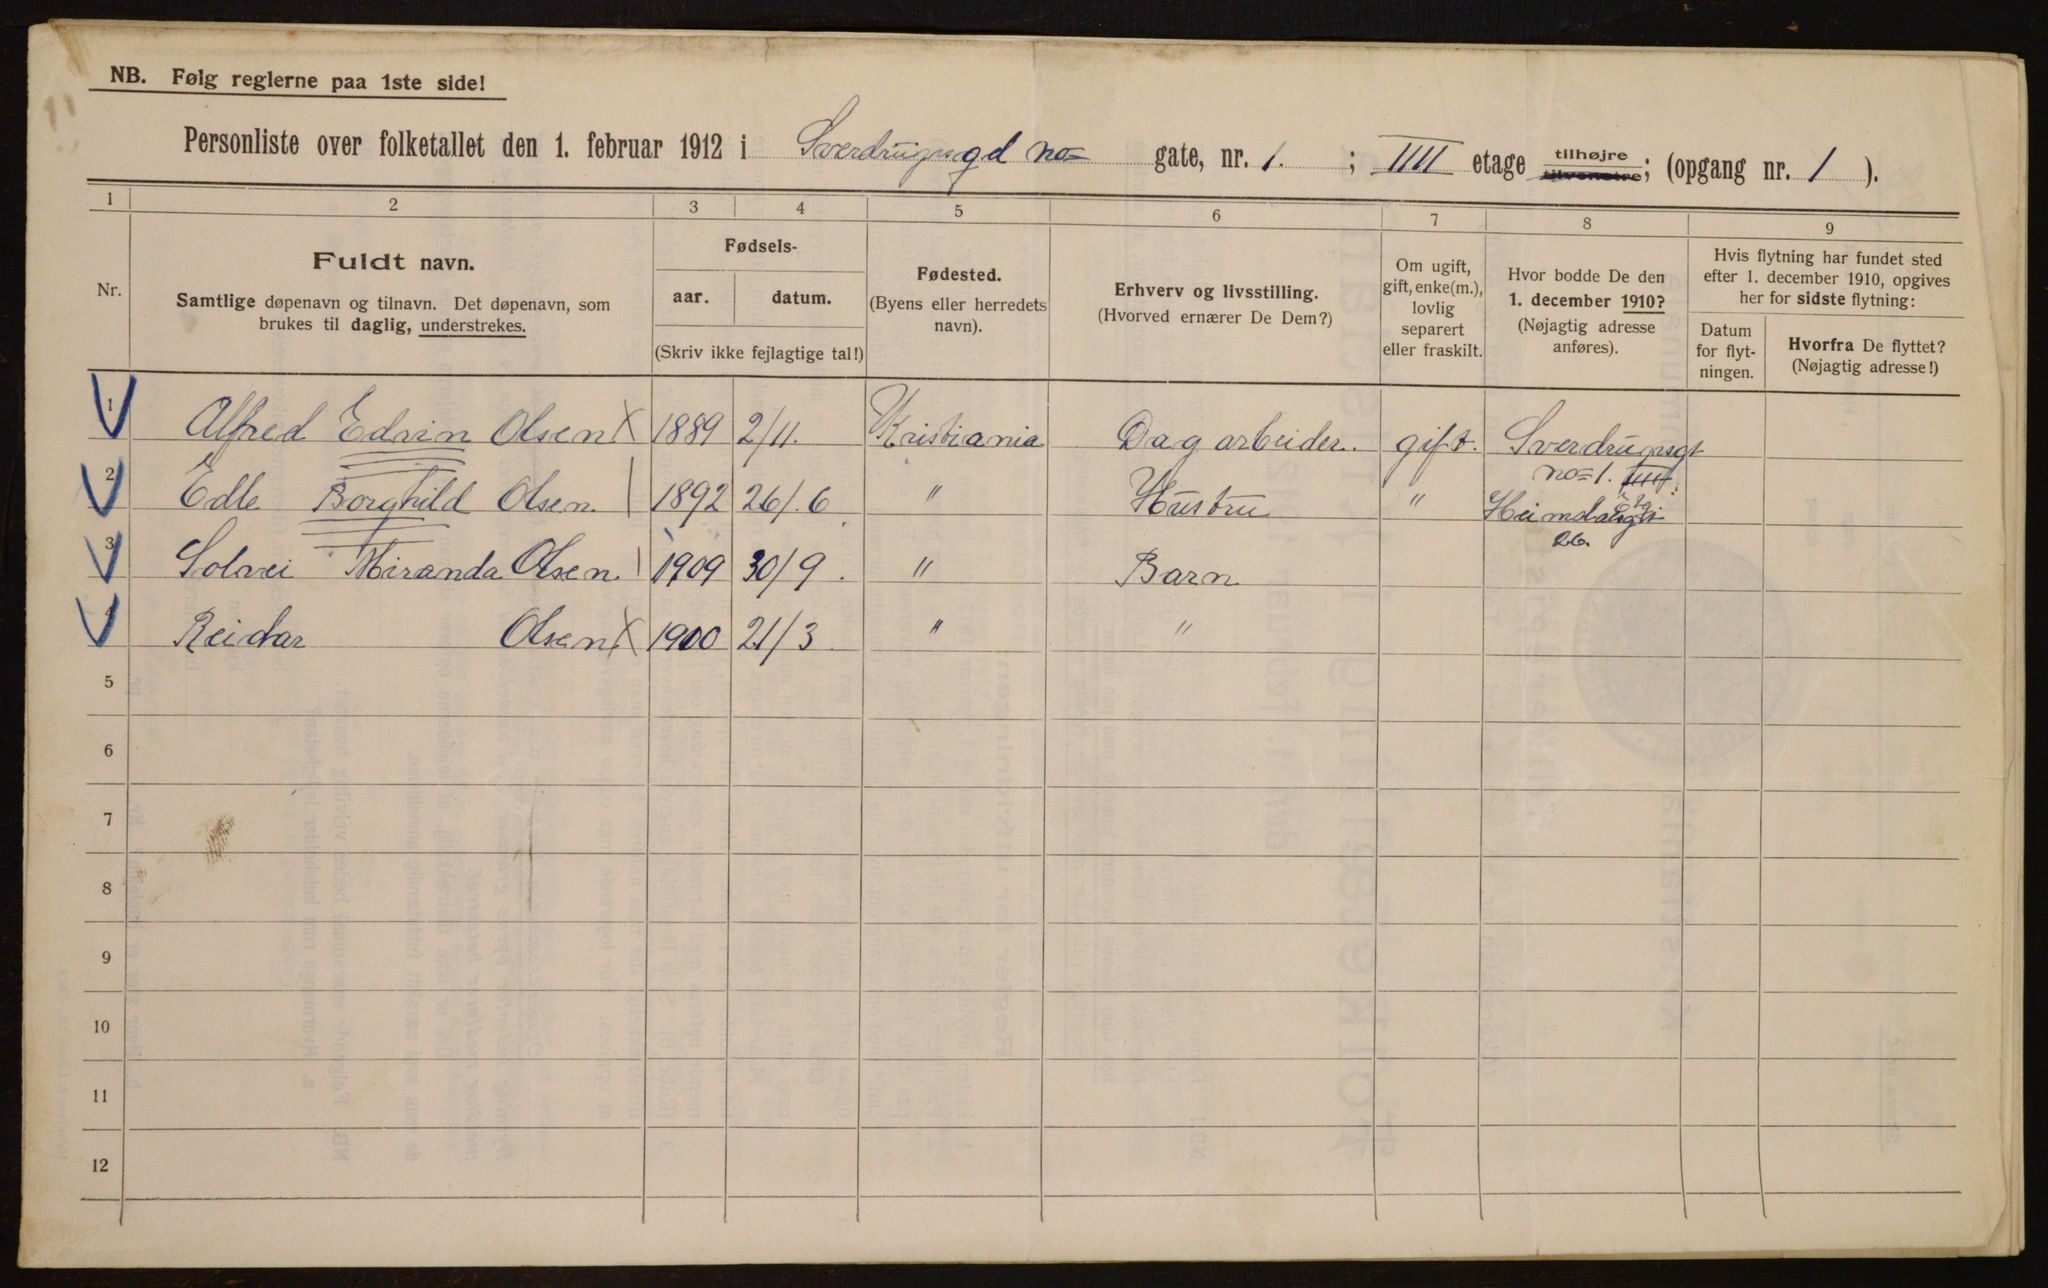 NB. Følg reglerne paa 1ste side!
Personliste over folketallet den 1. februar 1912 i Sverdrupsgd no= gate, nr. 1. ; IIII etage tilhøjre tilvenstre; (opgang nr. 1 ).
1 2 3 4 5 6 7 8 9
Nr.
Fuldt navn.
Samtlige døpenavn og tilnavn. Det døpenavn, som
brukes til daglig, understrekes.
Fødsels-
aar. datum.
(Skriv ikke fejlagtige tal!)
Fødested.
(Byens eller herredets
navn).
Erhverv og livsstilling.
(Hvorved ernærer De Dem?)
Om ugift,
gift, enke(m.),
lovlig
separert
eller fraskilt.
Hvor bodde De den
1. december 1910?
(Nøjagtig adresse
anføres).
Hvis flytning har fundet sted
efter 1. december 1910, opgives
her for sidste flytning:
Datum
for flyt-
ningen.
Hvorfra De flyttet?
(Nøjagtig adresse!)
1 Alfred Edvin Olsen X 1889 2/11. Kristiania Dagarbeider. gift. Sverdrupsgt
no=1. IIII
2 Edle Borghild Olsen. 1892 26/6 " Hustru " Heimdalsgt
26.
3 Solvei Miranda Olsen 1909 30/9. " Barn
4 Reidar Olsen X 1900 21/3 " "
5
6
7
8
9
10
11
12